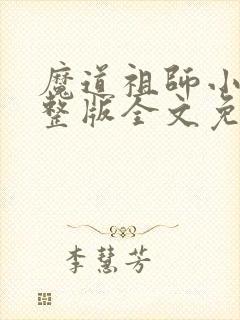 魔道祖師小
整版全文免
李慧芳